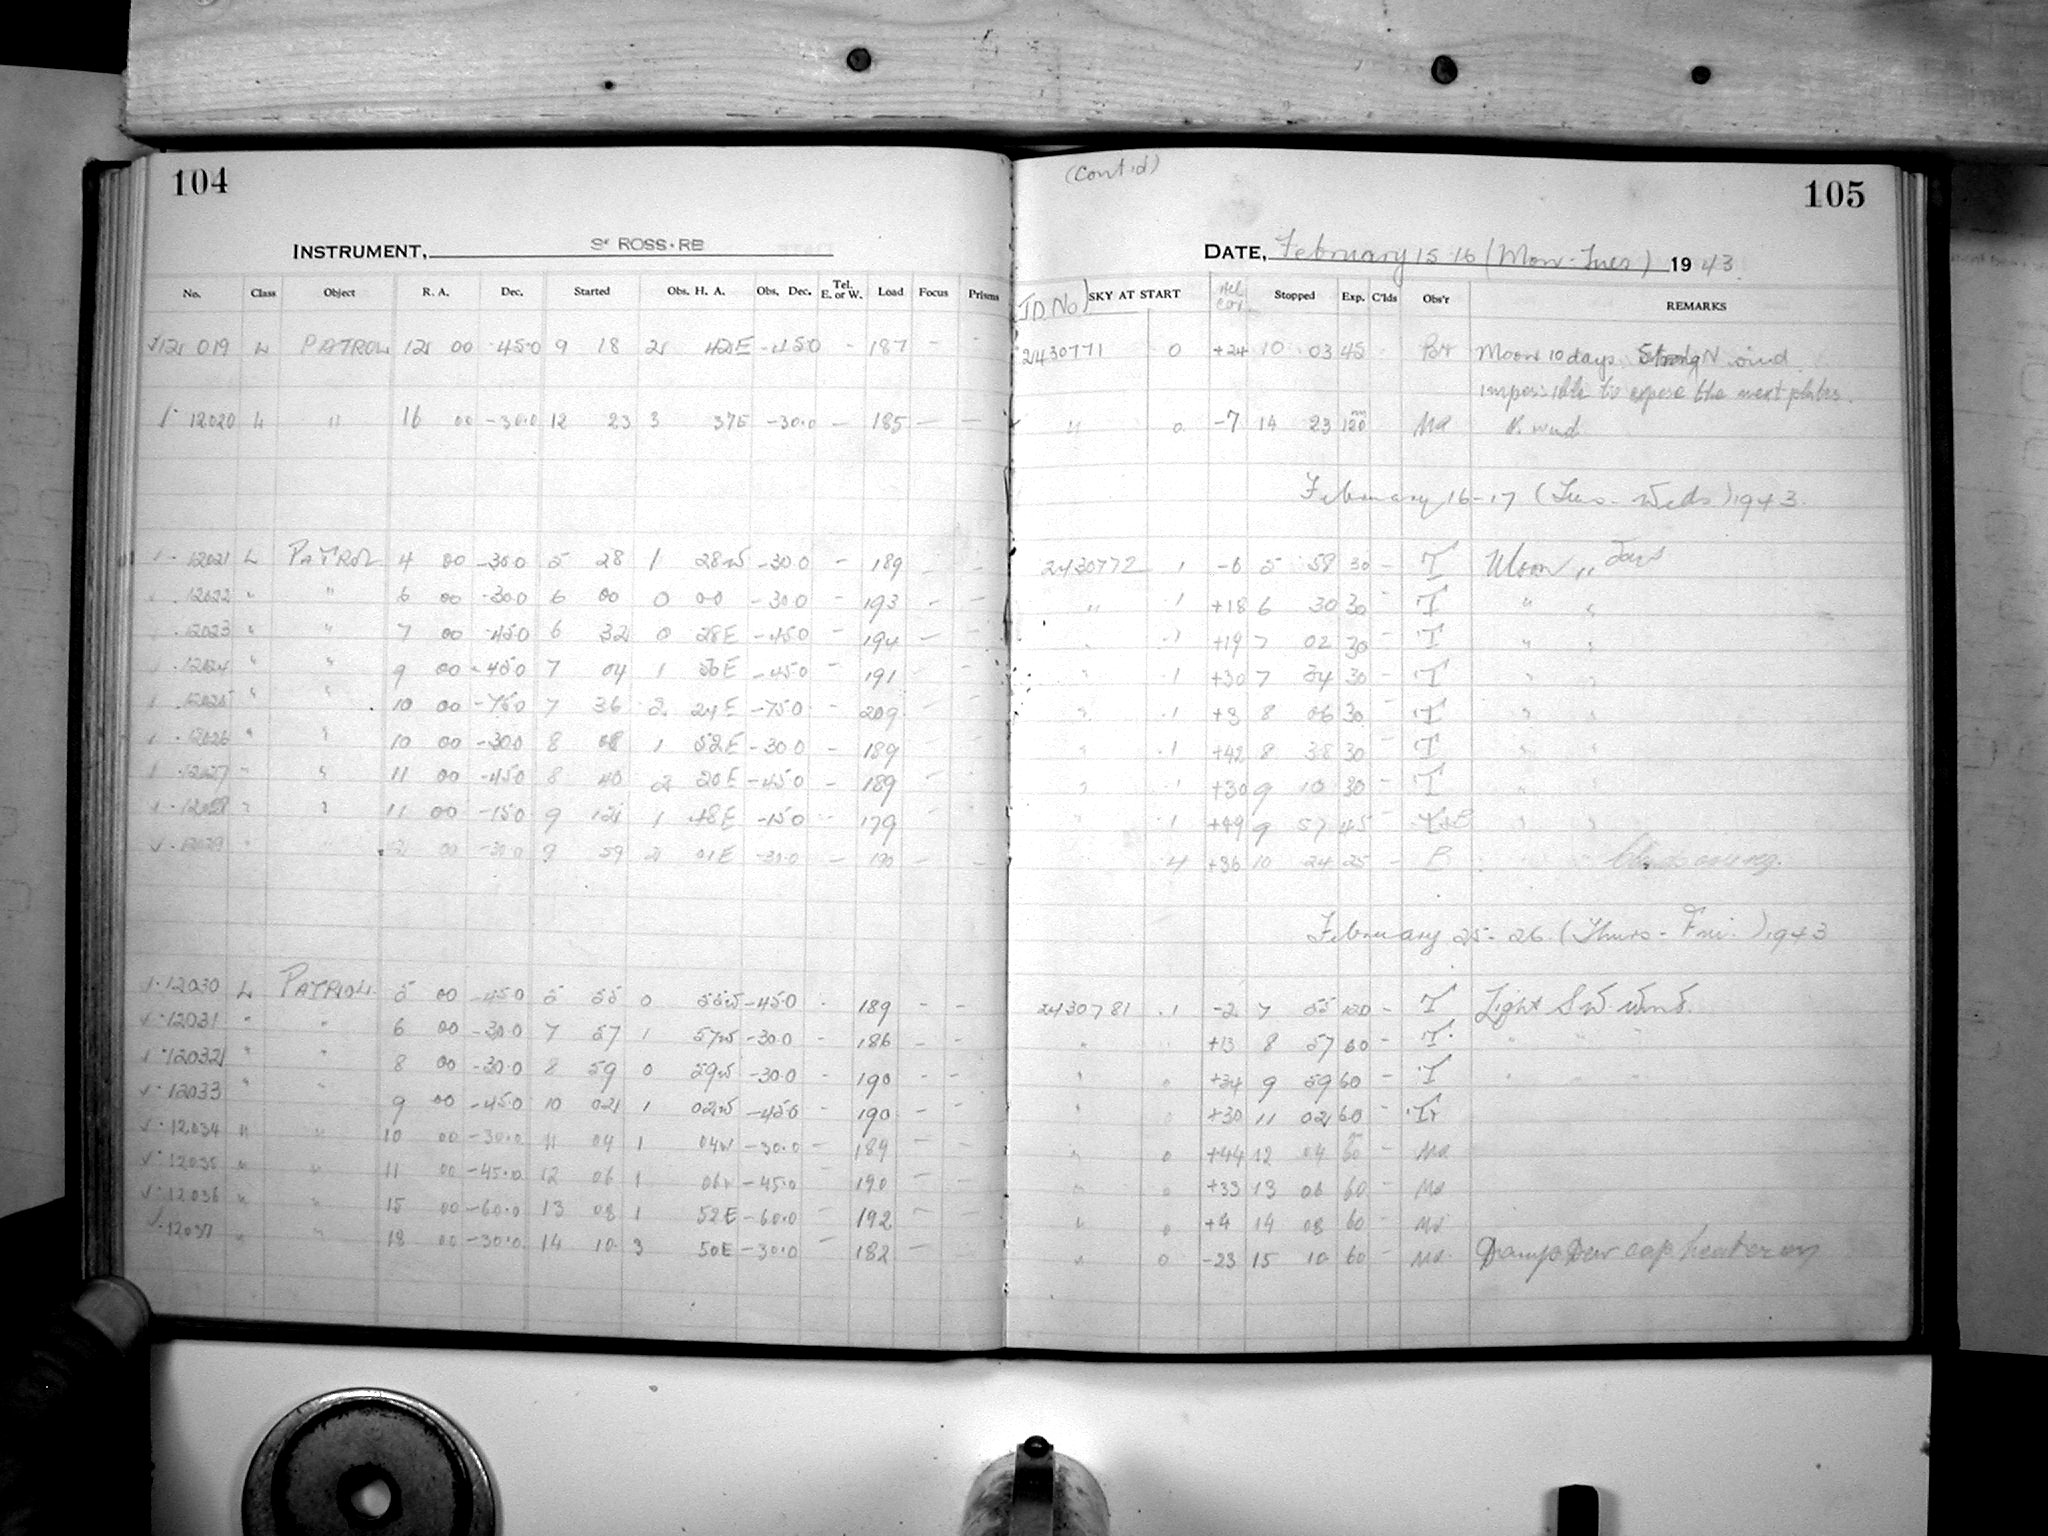 104
INSTRUMENT, ROSS-RB
No. Class Object R. A. Dec. Started Obs. H. A. Obs. Dec. Tel. E. or W. Load Focus Prisms
12 019 L PATROL 12 00 -45.0 9 18 2 42E -45.0 - 187 - -
12020 L " 16 00 -30.0 12 23 3 37E -30.0 - 185 - -
12021 L PATROL 4 00 -30.0 5 28 1 28W -30.0 - 189 - -
12022 " " 6 00 -30.0 6 00 0 00 -30.0 - 193 - -
12023 " " 7 00 -45.0 6 32 0 28E -45.0 - 194 - -
12024 " " 9 00 -45.0 7 04 1 56E -45.0 - 191 - -
12025 " " 10 00 -75.0 7 36 2 24E -75.0 - 209 - -
12026 " " 10 00 -30.0 8 08 1 52E -30.0 - 189 - -
12027 " " 11 00 -45.0 8 40 2 20E -45.0 - 189 - -
12028 " " 11 00 -15.0 9 12 1 48E -15.0 - 179 - -
12029 " " 00 -30.0 9 59 2 01E -30.0 - 190 - -
12030 L PATROL 5 00 -45.0 5 55 0 55W -45.0 - 189 - -
12031 " " 6 00 -30.0 7 57 1 57W -30.0 - 186 - -
12032 " " 8 00 -30.0 8 59 0 59W -30.0 - 190 - -
12033 " " 9 00 -45.0 10 02 1 02W -45.0 - 190 - -
12034 " " 10 00 -30.0 11 04 1 04W -30.0 - 189 - -
12035 " " 11 00 -45.0 12 06 1 06W -45.0 - 190 - -
12036 " " 15 00 -60.0 13 08 1 52E -60.0 - 192 - -
12037 " " 18 00 -30.0 14 10 3 50E -30.0 - 182 - -
(Cont'd)
105
DATE, February 15-16 (Mon-Tues) 1943
J.D. No. SKY AT START Hel Cor. Stopped Exp. C'lds Obs'r REMARKS
2430771 0 +24 10 03 45 Moon 10 days. Strong N wind.
impossible to expose the next plates.
" 0 -7 14 23 120 Md N. wind
February 16-17 (Tues-Weds) 1943
2430772 1 -6 5 58 30 - T Moon 11 days
" 1 +18 6 30 30 - T " "
" 1 +19 7 02 30 - T " "
" 1 +30 7 34 30 - T " "
" 1 +3 8 06 30 - T " "
" 1 +42 8 38 30 - T " "
" 1 +30 9 10 30 - T " "
" 1 +49 9 57 45 - " "
4 +36 10 24 25 -
February 25-26 (Thurs-Fri.) 1943
2430781 1 -2 7 55 120 - T Light SW wind.
" " +13 8 57 60 - T " "
" 0 +34 9 59 60 - T " "
" 0 +30 11 02 60 - Tr
" 0 +44 12 04 60 - Md
" 0 +33 13 06 60 - Md
" 0 +4 14 08 60 - Md
" 0 -23 15 10 60 - Md Damp Dew cap heater on